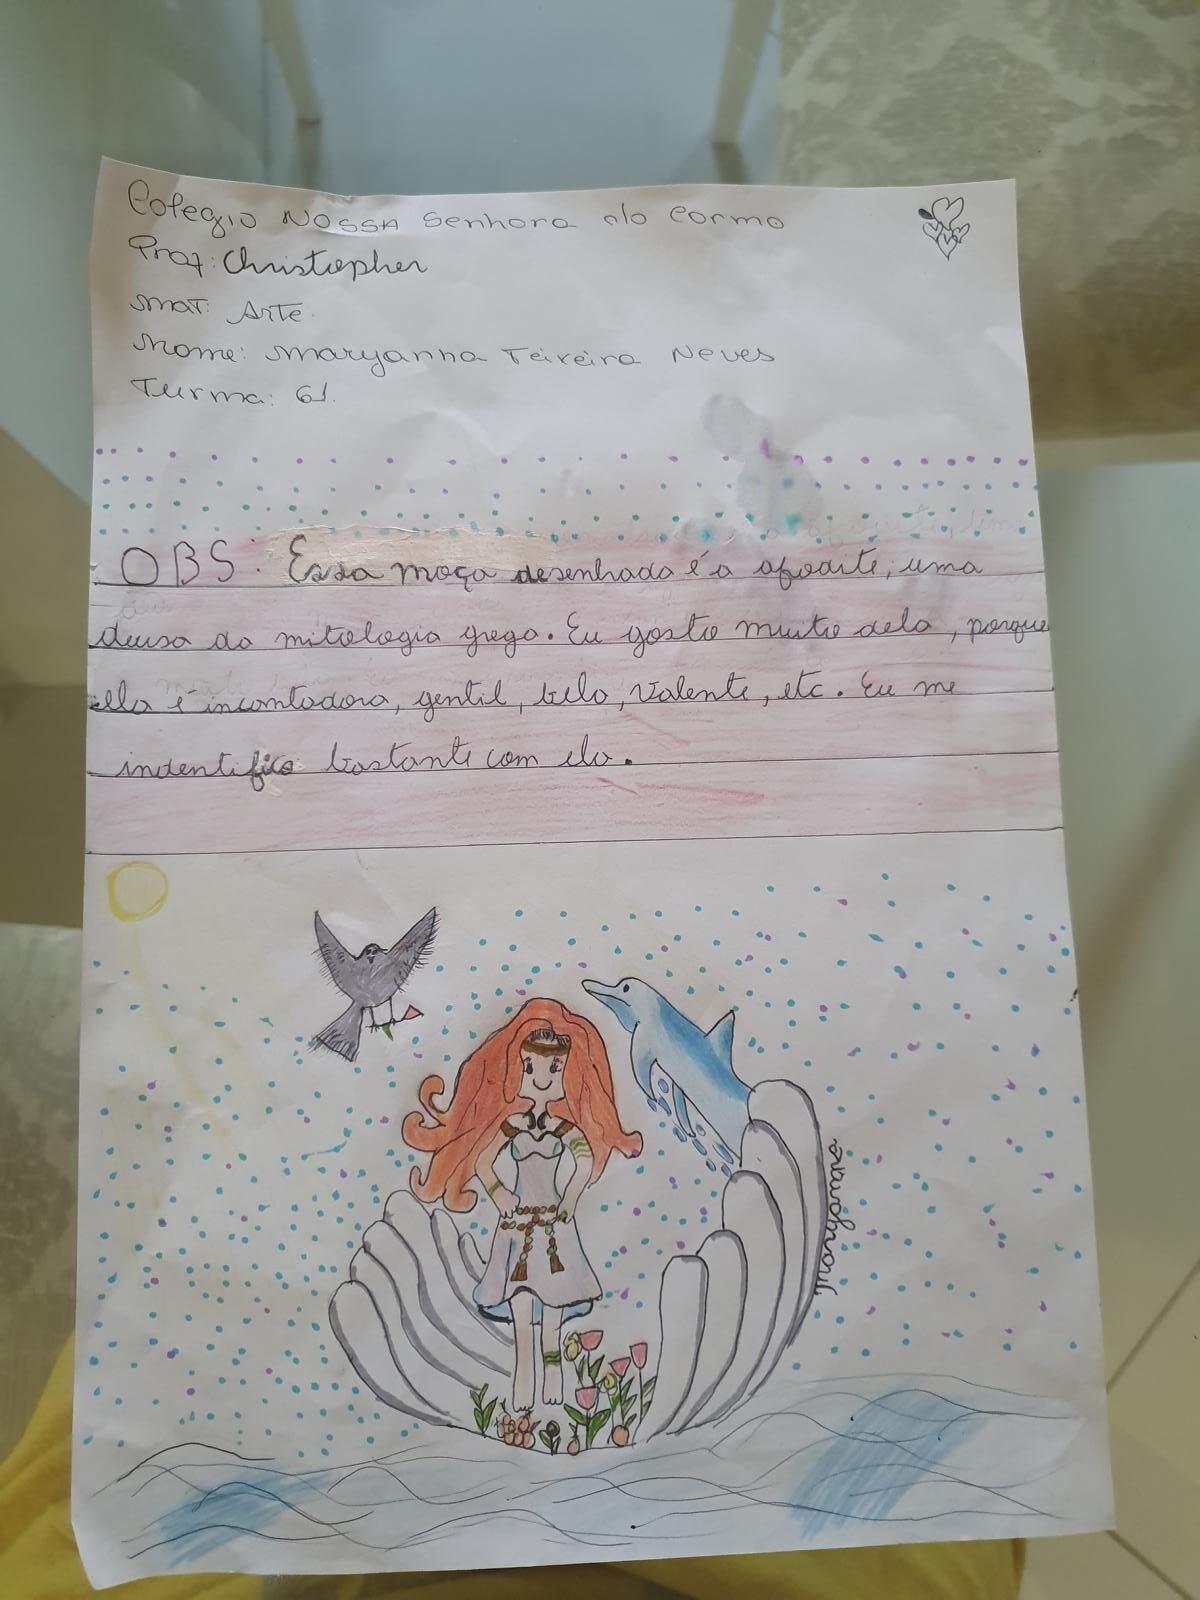 Colegio Nossa Senhora do Carmo
Prof: Christopher
Mat: Arte
Nome: Maryanna Teixeira Neves
Turma: 61.
OBS: Essa moça desenhada é a afodite, uma
deusa da mitologia grega. Eu gosto muito dela, porque
ella é incantadora, gentil, bela, valente, etc. Eu me
indentifico bastante com ela.